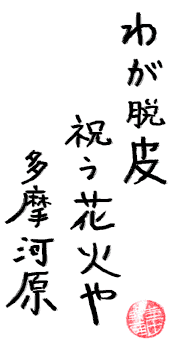 わが脱皮
祝う花火や
多摩河原